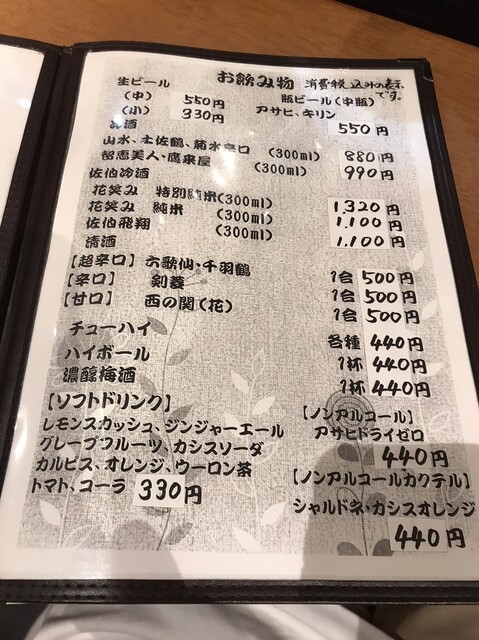 お飲み物 消費税込みの表示です。
生ビール
(中) 550円
(小) 330円
瓶ビール(中瓶)
アサヒ、キリン 550円
冷酒
山水、土佐鶴、菊水辛口 (300ml) 880円
智恵美人・鷹来屋 (300ml) 990円
佐伯冷酒
花笑み 特別純米(300ml) 1,320円
花笑み 純米 (300ml) 1,100円
佐伯飛翔 (300ml) 1,100円
清酒
【超辛口】六歌仙・千羽鶴 1合 500円
【辛口】 剣菱 1合 500円
【甘口】 西の関(花) 1合 500円
チューハイ 各種 440円
ハイボール 1杯 440円
濃醇梅酒 1杯 440円
【ソフトドリンク】
レモンスカッシュ、ジンジャーエール
グレープフルーツ、カシスソーダ
カルピス、オレンジ、ウーロン茶
トマト、コーラ 330円
【ノンアルコール】
アサヒドライゼロ
440円
【ノンアルコールカクテル】
シャルドネ・カシスオレンジ
440円